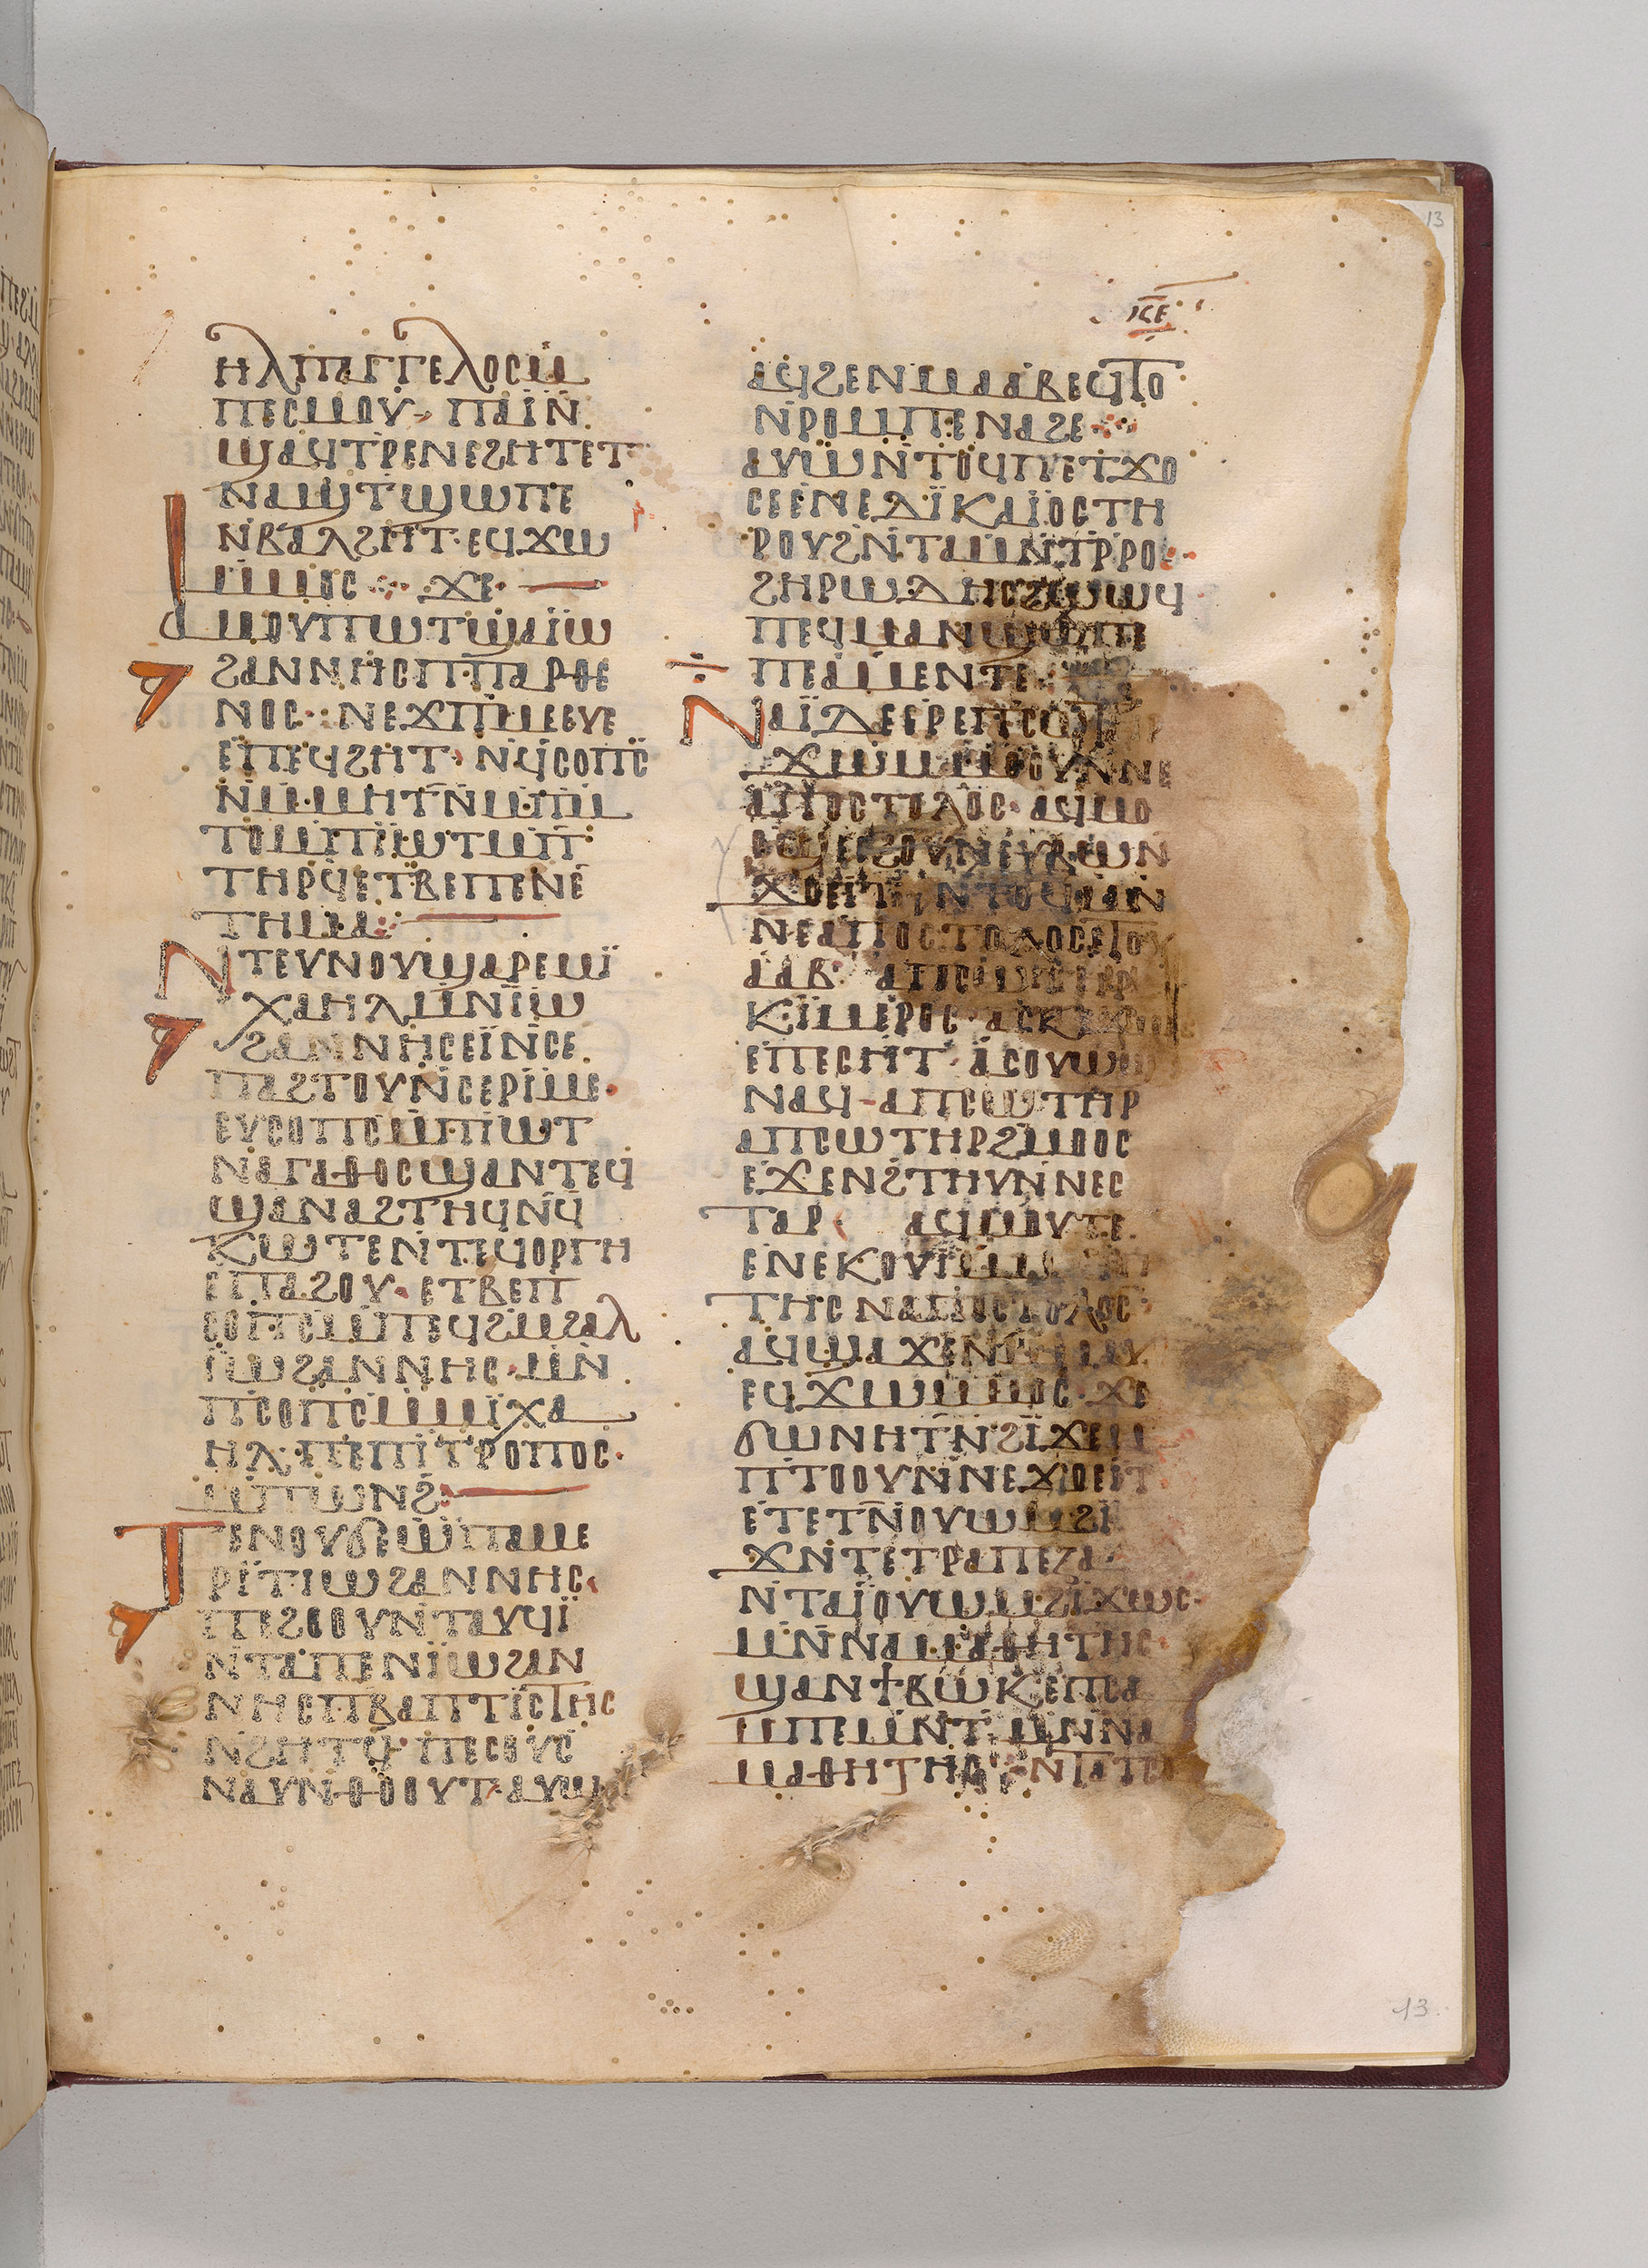 ⲕⲉ
13
ⲏⲗⲡⲁⲅⲅⲉⲗⲟⲥⲙ̇
ⲡⲉⲥⲙⲟⲩ· ⲡⲁⲓ̈ⲛ̇
ϣⲁϥⲧⲣⲉⲛⲉϩⲏⲧⲉⲧ
ⲛⲁϣⲧϣⲱⲡⲉ
ⲛ̇ⲃⲁⲗϩⲏⲧ· ⲉϥϫⲱ
ⲙ̇ⲙⲟⲥ ⁘ ϫⲉ
ⲁⲙⲟⲩⲡⲱⲧϣⲁⲓ̈ⲱ
ϩⲁⲛⲛⲏⲥⲡ̇ⲡⲁⲣⲑⲉ
ⲛⲟⲥ· ⲛⲉϫⲡⲙⲉⲉⲩⲉ
ⲉⲡⲉϥϩⲏⲧ· ⲛϥⲥⲟⲡⲥ̄
ⲛⲙⲙⲏⲧⲛ̇ⲙ̇ⲡⲙ
ⲧⲟⲙ̇ⲡⲓⲱⲧⲙ̇ⲡ̇
ⲧⲏⲣϥ̇ⲉⲧⲃⲉⲡⲉⲛⲉ̇
ⲧⲏⲙⲁ·
ⲛⲧⲉⲩⲛⲟⲩϣⲁⲣⲉⲙⲓ̈
ⲭⲁⲏⲗⲙⲛ̇ⲓ̈ⲱ
ϩⲁⲛⲛⲏⲥⲉⲓ̈ⲛ̇ⲥⲉ
ⲡⲁϩⲧⲟⲩⲛ̇ⲥⲉⲣⲓ̈ⲙⲉ·
ⲉⲩⲥⲟⲡⲥⲙ̇ⲡⲓⲱⲧ
ⲛⲁⲅⲁⲑⲟⲥϣⲁⲛⲧⲉϥ
ϣⲁⲛⲁϩⲧⲏϥⲛϥ̇
ⲕⲱⲧⲉⲛ̇ⲧⲉϥⲟⲣⲅⲏ
ⲉⲡⲁϩⲟⲩ· ⲉⲧⲃⲉⲡ̇
ⲥⲟⲡⲥⲙ̇ⲡⲉϥϩⲙϩⲁⲗ
ⲓ̈ⲱϩⲁⲛⲛⲏⲥ· ⲙⲛ̇
ⲡⲥⲟⲡⲥⲙ̇ⲙⲓ̈ⲭⲁ
ⲏⲗ· ⲡⲉⲡⲓⲧⲣⲟⲡⲟⲥ·
ⲙ̇ⲡⲱⲛϩ̇
ⲧⲉⲛⲟⲩϭⲉⲱ̇ⲡⲁⲙⲉ
ⲣⲓ̈ⲧⲓⲱϩⲁⲛⲛⲏⲥ
ⲡⲉϩⲟⲟⲩⲛ̇ⲧⲁⲩϥⲓ̈
ⲛ̇ⲧⲁⲡⲉⲛ̇ⲓ̈ⲱϩⲁⲛ
ⲛⲏⲥⲡⲃⲁⲡⲧⲓⲥⲧⲏⲥ
ⲛ̇ϩⲏⲧϥ̇· ⲡⲉⲥⲟⲩⲥ̇
ⲛⲁⲩⲛ̇ⲑⲟⲟⲩⲧ· ⲁⲩⲱ
ⲁϥϩⲉⲛⲙⲁⲁⲃⲉϥⲧⲟ
ⲛ̇ⲣⲟⲙⲡⲉⲛⲁϩⲉ⁘
ⲁⲩⲱⲛ̇ⲧⲟϥⲡⲉⲧϫⲟ
ⲥⲉⲉ̇ⲛⲉⲇⲓ̈ⲕⲁⲓ̈ⲟⲥⲧⲏ
ⲣⲟⲩϩⲛ̇ⲧⲁⲙⲛ̇ⲧⲣ̇ⲣⲟ·
ϩⲏⲣⲱⲇⲏⲥϩⲱⲱϥ
ⲡⲉϥⲙⲁⲛϣⲱⲡⲉ
ⲡⲉⲁⲙⲉⲛⲧⲉ·
ⲛⲁⲓ̈ⲇⲉⲉⲣⲉⲡⲥⲱⲧⲏⲣ
ϫⲱⲙ̇ⲙⲟⲟⲩⲛ̇ⲛⲉ
ⲁⲡⲟⲥⲧⲟⲗⲟⲥ· ⲁϥⲙⲟ
ⲟϣⲉⲉϩⲟⲩⲛ
ϫⲟⲉⲓⲧ ⲛⲧⲟϥⲙⲛ
ⲛⲉⲁⲡⲟⲥⲧⲟⲗⲟⲥⲉⲧⲟⲩ
ⲁⲁⲃ·
ⲉⲡⲉⲥⲏⲧ· ⲁⲥⲟⲩⲱϣ
ⲛⲁϥ· ⲁⲡⲥⲱⲧⲏⲣ
ⲁⲡⲥⲱⲧⲏⲣϩⲙⲟⲟⲥ
ⲉϫⲉⲛϩⲧⲏⲩⲛ̇ⲛⲉⲥ
ⲧⲁⲣ ⲁϥⲙⲟⲩⲧⲉ
ⲉⲛⲉⲕⲟⲩⲓ̈ⲙⲙⲁⲑⲏ
ⲧⲏⲥⲛⲁⲡⲟⲥⲧⲟⲗⲟⲥ
ⲁϥϣⲁϫⲉⲛⲙ̇ⲙⲁⲩ
ⲉϥϫⲱⲙ̇ⲙⲟⲥ· ϫⲉ
ϭⲱⲛⲏⲧⲛ̄ϩⲓ̈ϫⲉⲙ
ⲡⲧⲟⲟⲩⲛ̇ⲛⲉϫⲟⲉⲓⲧ
ⲉⲧⲉⲧⲛ̄ⲟⲩⲱⲙϩⲓ̈
ϫⲛ̇ⲧⲉⲧⲣⲁⲡⲉⲍⲁ
ⲛ̇ⲧⲁⲓ̈ⲟⲩⲱⲙϩⲓ̈ϫⲱⲥ·
ⲙⲛ̇ⲛⲁⲙⲁⲑⲏⲧⲏⲥ
ϣⲁⲛϯⲃⲱⲕⲉⲡⲥⲁ
ⲙⲡⲉⲙⲛ̇ⲧ· ⲙⲛ̇ⲛⲁ
ⲙⲁⲑⲏⲧⲏⲥ· ⲛⲧⲁⲡⲥⲱ
13